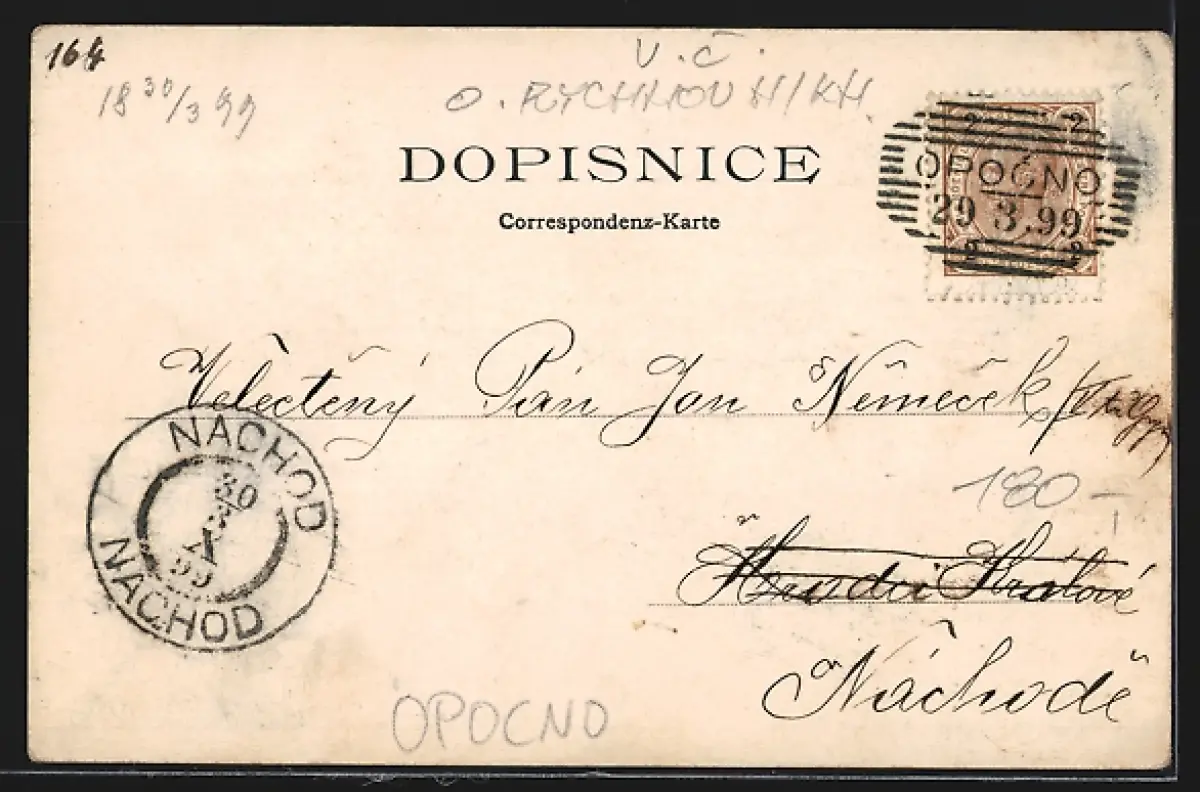 164
18 30/3 99
V. Č.
O. RYCHNOV H/KH
DOPISNICE
Correspondenz-Karte
2 2
OPOČNO
29 3.99
2 2
Velectěný Pán Jan Němeček
NÁCHOD
30
3
99
NÁCHOD
180 —
Hradci Králové
Náchodě
OPOCNO